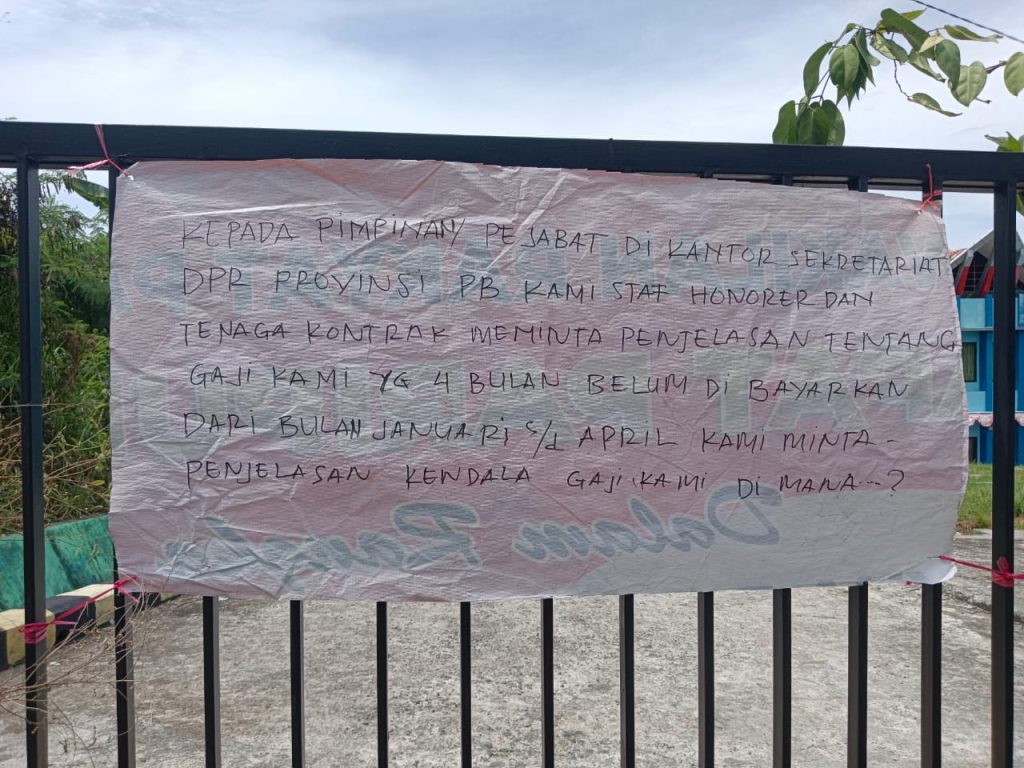 KEPADA PIMPINAN/ PEJABAT DI KANTOR SEKRETARIAT
DPR PROVINSI PB KAMI STAF HONORER DAN
TENAGA KONTRAK MEMINTA PENJELASAN TENTANG
GAJI KAMI YG 4 BULAN BELUM DI BAYARKAN
DARI BULAN JANUARI S/d APRIL KAMI MINTA -
PENJELASAN KENDALA GAJI KAMI DI MANA...?
Dalam